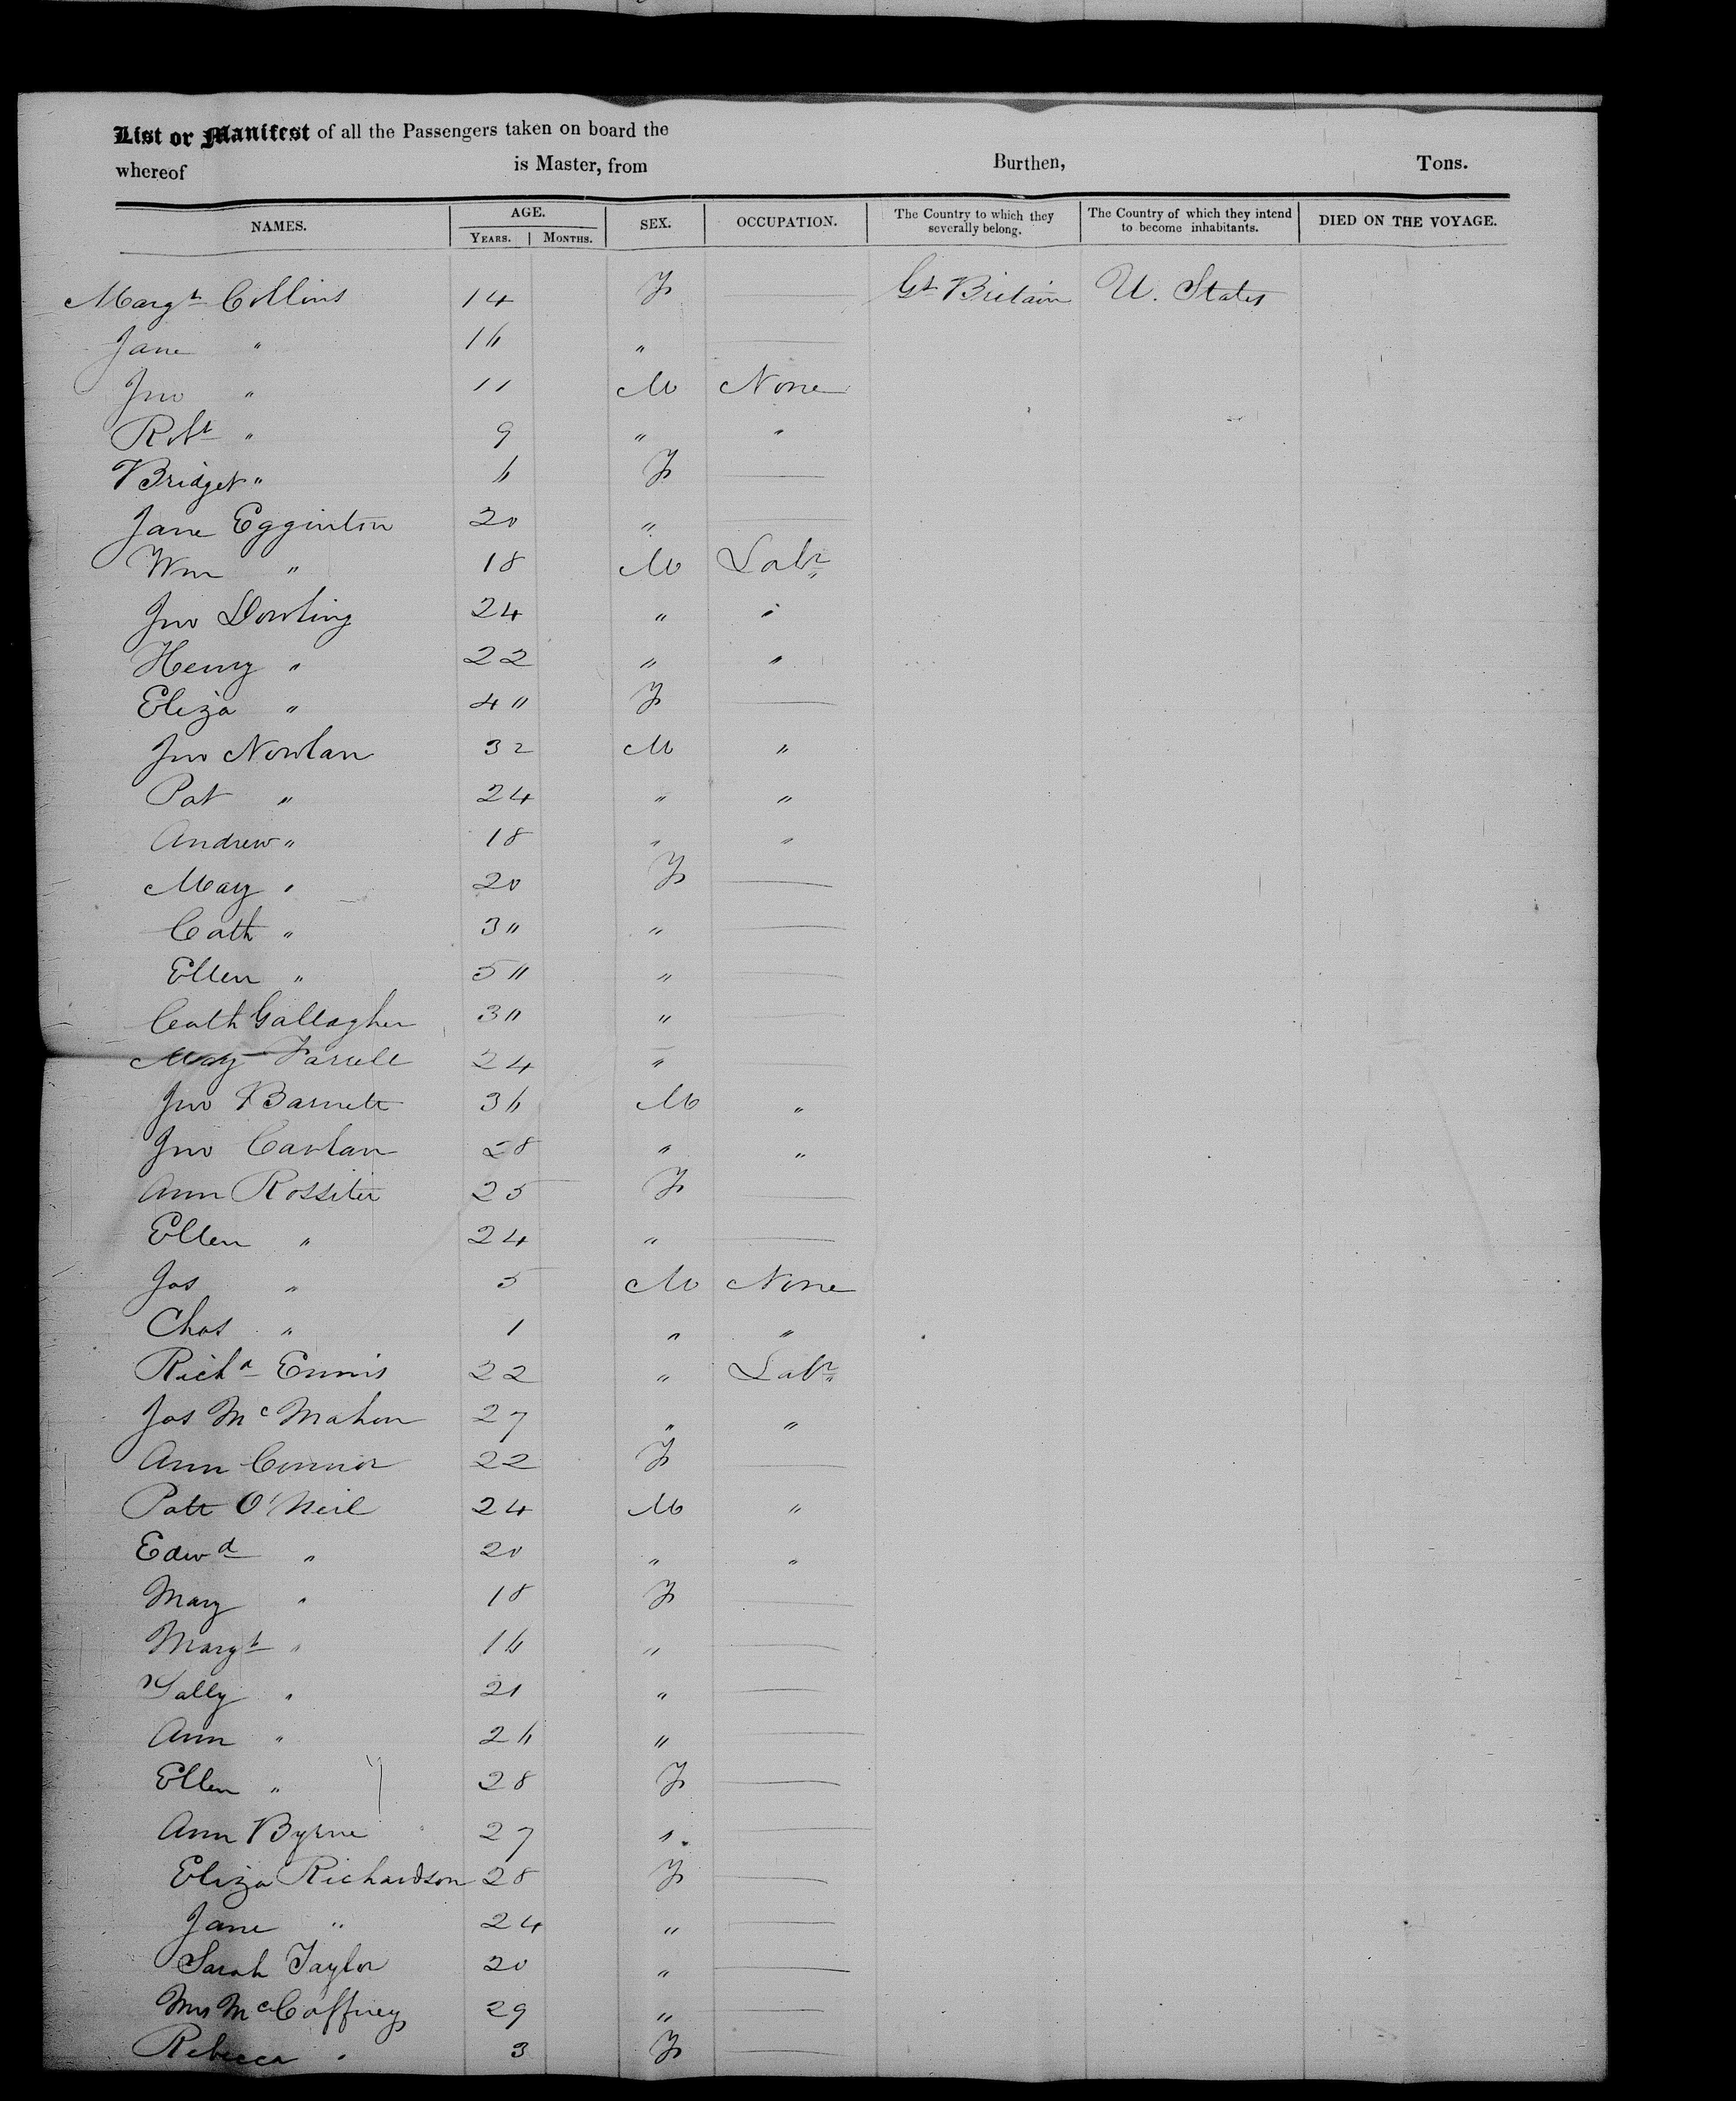 List or Manifest of all the Passengers taken on board the
whereof is Master, from Burthen, Tons.
NAMES. AGE. YEARS. MONTHS. SEX. OCCUPATION. The Country to which they severally belong. The Country of which they intend to become inhabitants. DIED ON THE VOYAGE.
Margt Collins 14 F Gt Britain U. States
Jane " 16 "
Jno " 11 M None
Robt " 9 " "
Bridget " 6 F
Jane Egginton 20 "
Wm " 18 M Labr
Jno Dowling 24 " "
Henry " 22 " "
Eliza " 4 " F
Jno Nowlan 32 M "
Pat " 24 " "
Andrew " 18 " "
Mary " 20 F
Cath " 3 " "
Ellen " 5 " "
Cath Gallagher 3 " "
Mary Farrell 24 "
Jno Barnett 36 M "
Jno Cavlan 28 " "
Ann Rossiter 25 F
Ellen " 24 "
Jas " 5 M None
Chas " 1 " "
Richd Ennis 22 " Labr
Jas McMahon 27 " "
Ann Connor 22 F
Patt O'Neil 24 M "
Edwd " 20 " "
Mary " 18 F
Margt " 16 "
Sally " 21 "
Ann " 26 "
Ellen " 28 F
Ann Byrne 27 "
Eliza Richardson 28 F
Jane " 24 "
Sarah Taylor 20 "
Mrs McCaffrey 29 "
Rebecca " 3 F